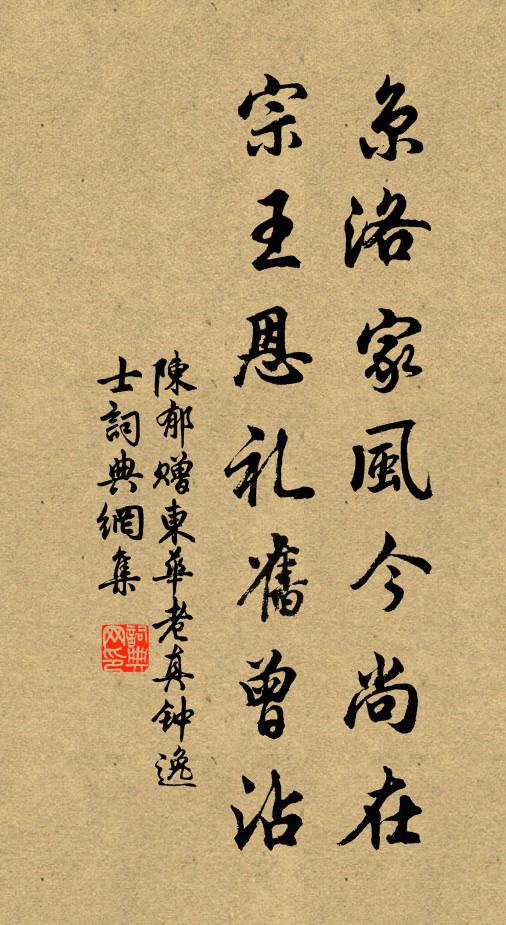 京洛家風今尚在
宗王恩礼舊曾沾
陳郁贈東華老真钟逸
士詞典網集
詞典
网印